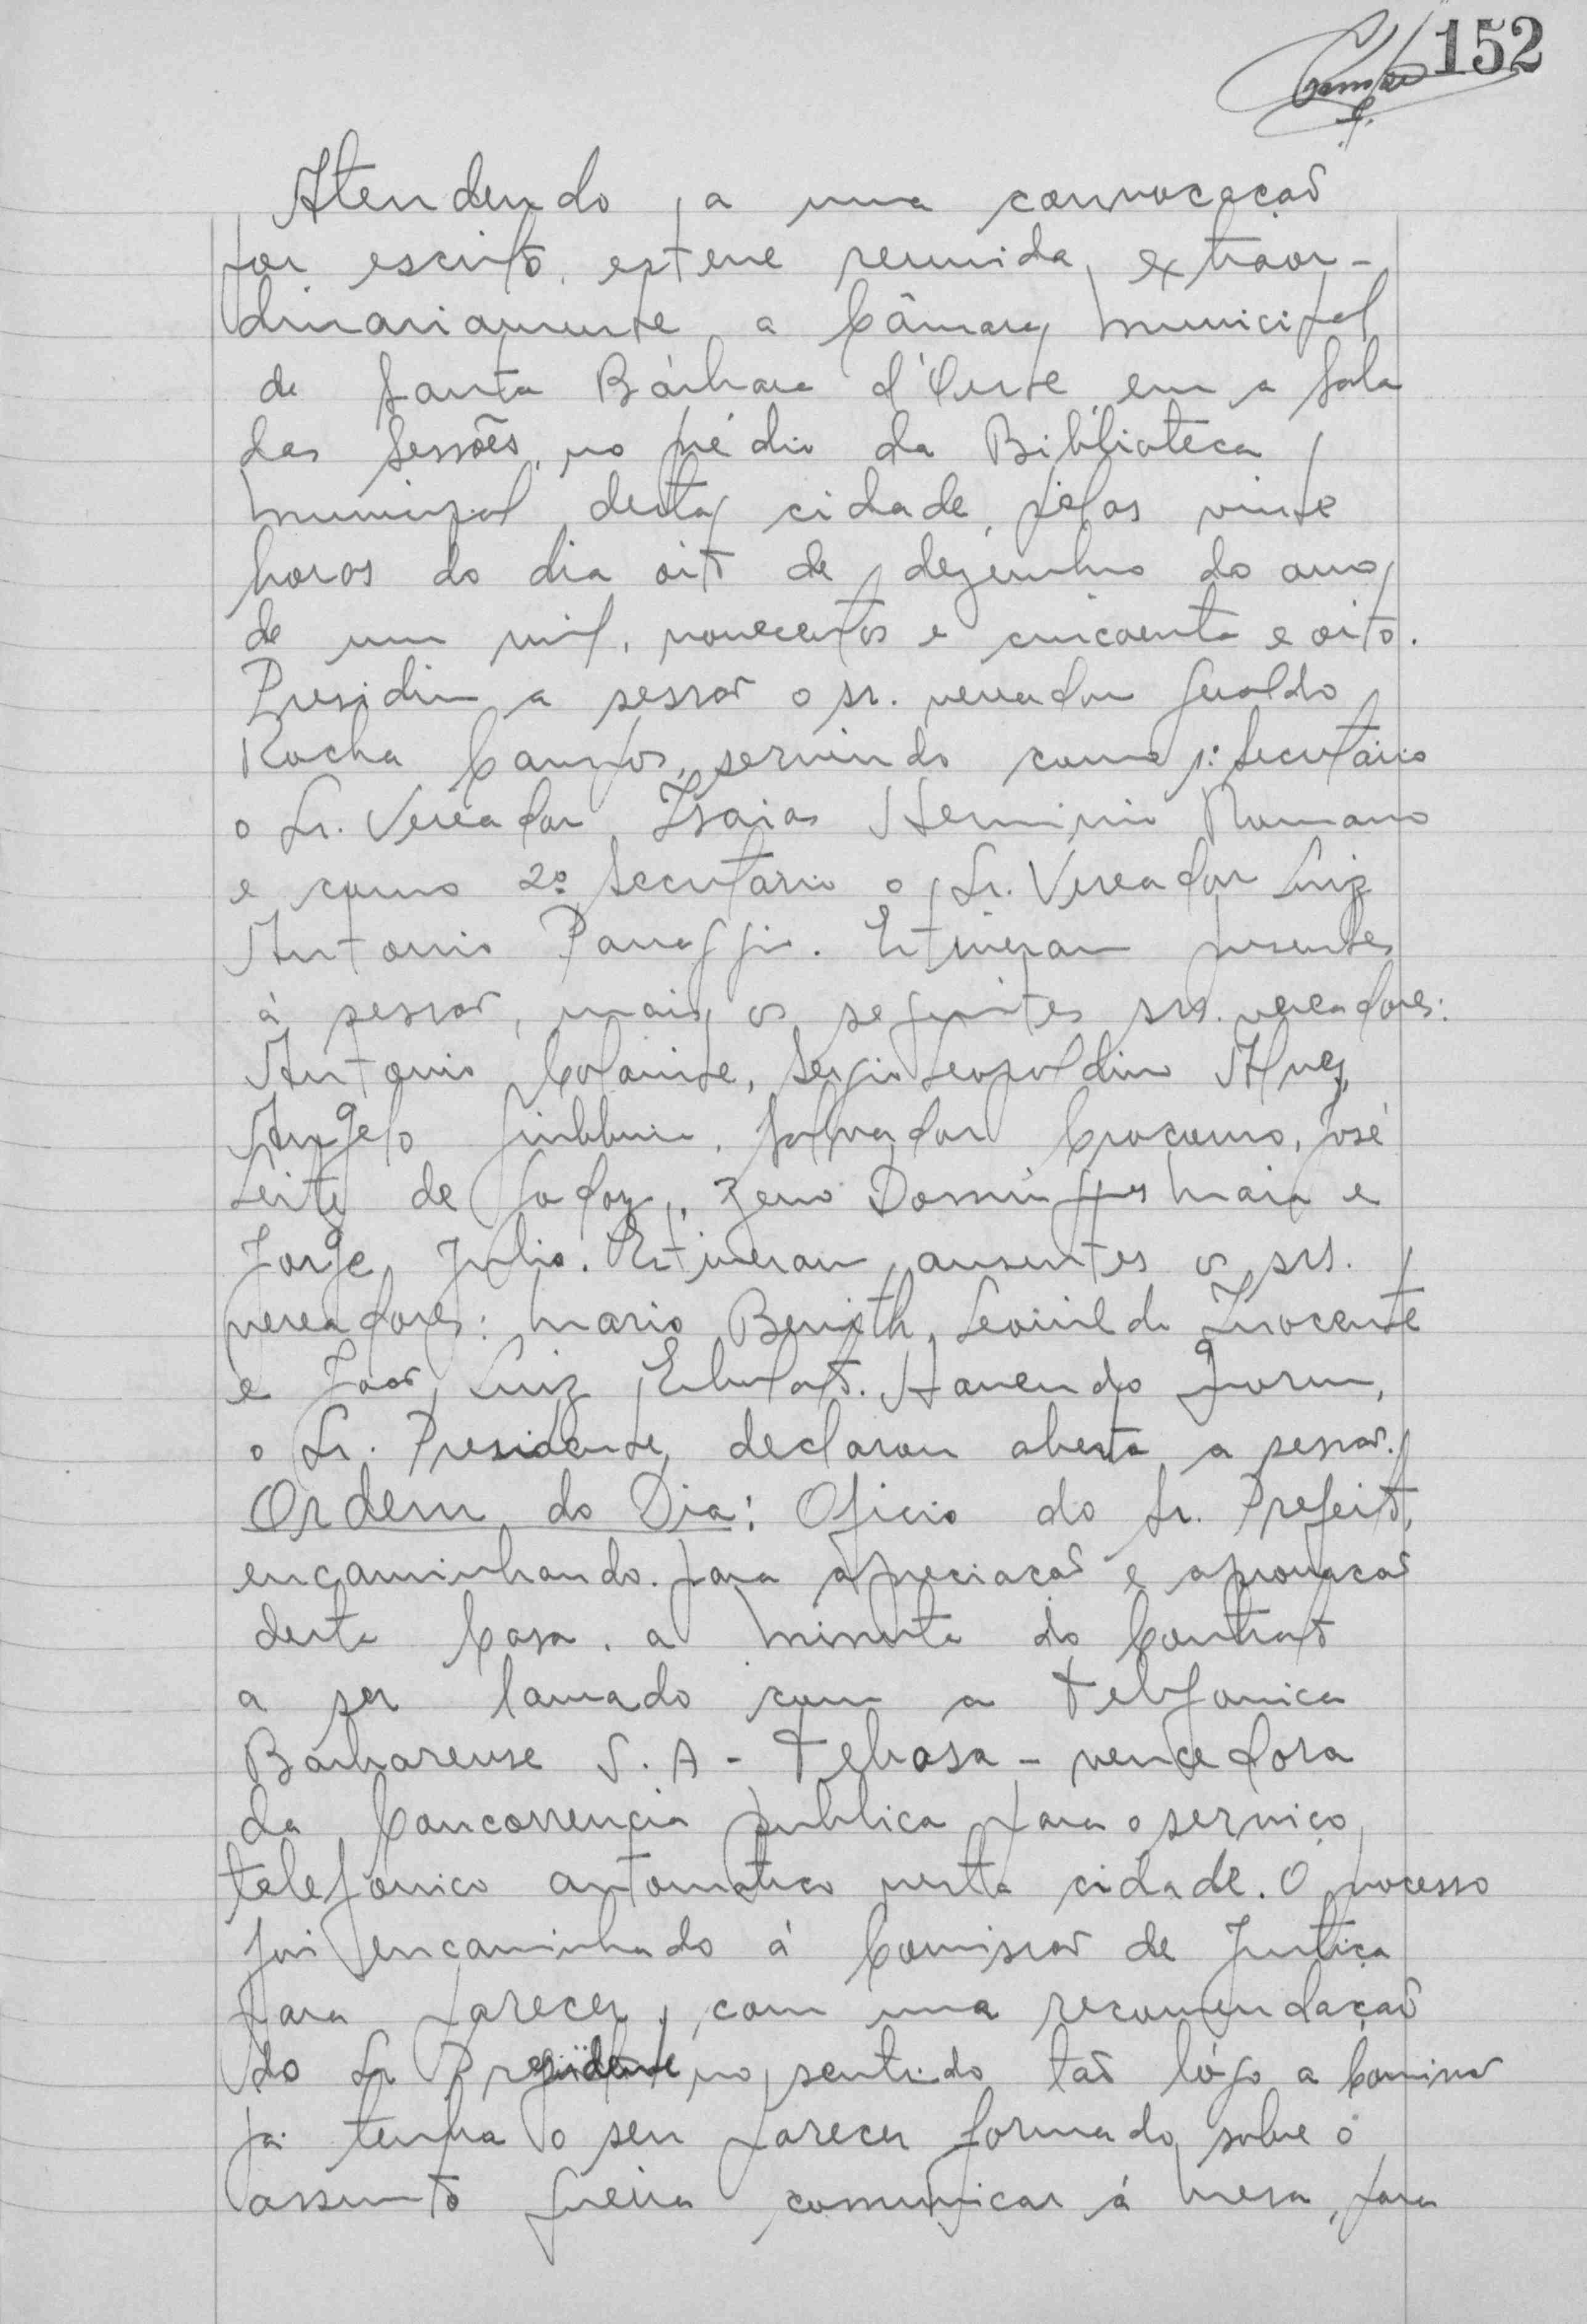 152
Atendendo a uma convocação
por escrito, esteve reunida, extraor-
dinariamente a Câmara Municipal
de Santa Bárbara d'Oeste, em a Sala
das Sessões, no prédio da Biblioteca
Municipal desta cidade, pelas vinte
horas do dia oito de dezembro do ano
de um mil, novecentos e cincoenta e oito.
Presidiu a sessão o sr. vereador Geraldo
Rocha Campos, servindo como 1º Secretário
o Sr. Vereador Isaias Herminio Romano
e como 2º Secretário o Sr. Vereador Luiz
Antonio Panaggio. Estiveram presentes
à sessão, mais os seguintes srs. vereadores:
Antonio Colainte, Sergio Leopoldino Alves,
Angelo Giubbina, Salvador Crocomo, José
Leite de Godoy, Zeno Domingues Maia e
Jorge Julio. Estiveram ausentes os srs.
vereadores: Mario Benith, Leovildo Inocente
e João Luiz. Havendo quorum,
o Sr. Presidente, declarou aberta a sessão.
Ordem do Dia: Oficio do Sr. Prefeito,
encaminhando para apreciação e aprovação
desta Casa, a Minuta do Contrato
a ser lavrado com a Telefonica
Barbarense S.A - Tebasa - vencedora
da Concorrencia publica para o serviço
telefonico automatico nesta cidade. O processo
foi encaminhado á Comissão de Justiça
para parecer, com uma recomendação
do Sr Presidente, no sentido tão lógo a Comissão
já tenha o seu parecer formado sobre o
assunto queira comunicar á Mesa, para